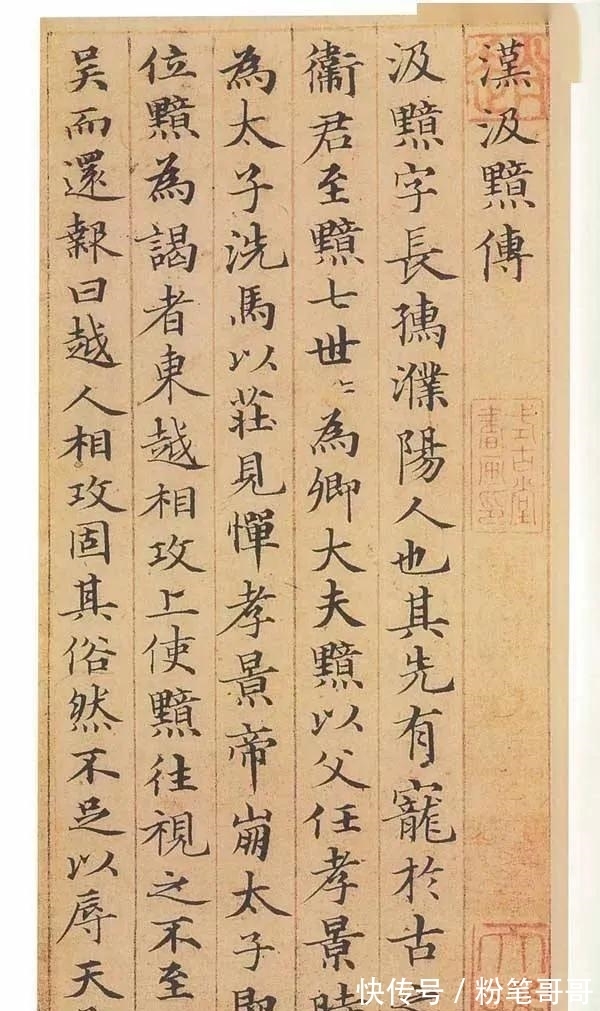 漢汲黯傳
汲黯字長孺濮陽人也其先有寵於古之
衞君至黯七世〻為卿大夫黯以父任孝景時
為太子洗馬以莊見憚孝景帝崩太子即
位黯為謁者東越相攻上使黯往視之不至
吳而還報曰越人相攻固其俗然不足以辱天
快传号 / 粉笔哥哥